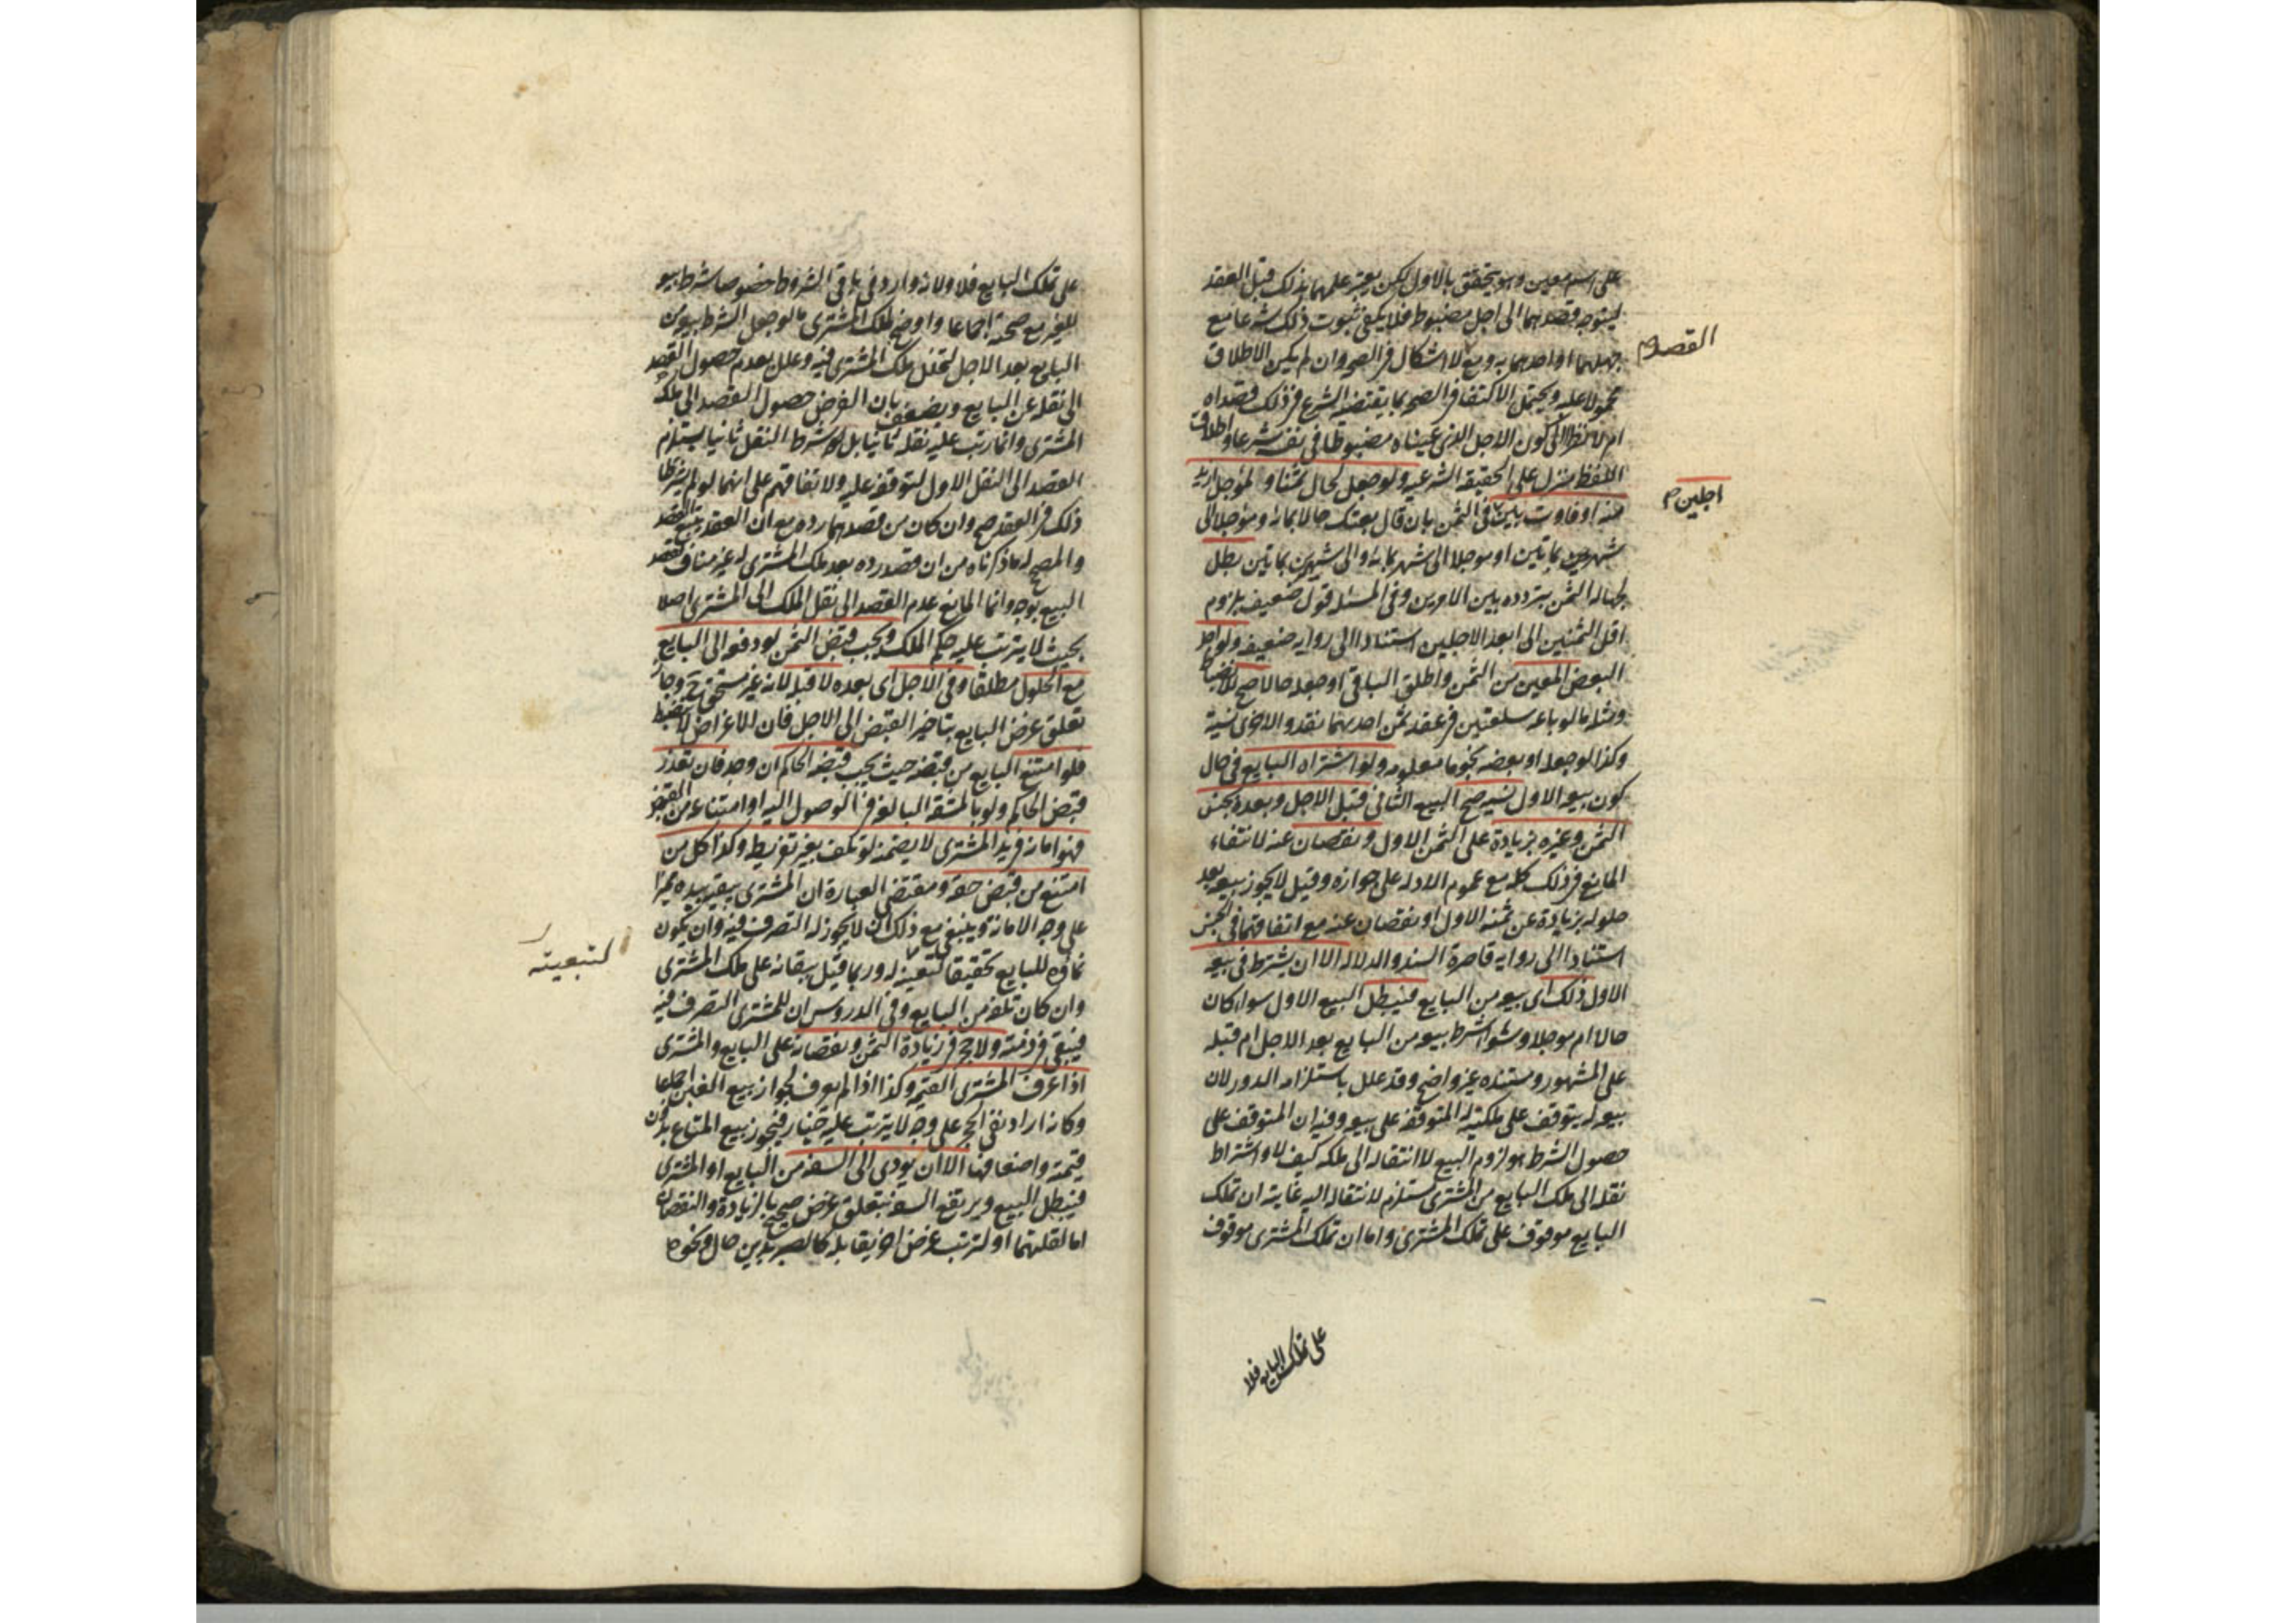 على اسم معين وهو يتحقق بالاول لكن يعتبر علمهما بذلك قبل العقد
ليتوجه قصدهما الى اجل مضبوط فلا يكفى ثبوت ذلك شرعا مع
جهلهما او احدهما به ومع لا اشكال فى الصحه وان لم يكن الاطلاق
محمولا عليه ويحتمل الاكتفا فى الصحه بما يقتضيه الشرع فى ذلك قصداه
ام لا نظرا الى كون الاجل الذى عيناه مضبوطا فى نفسه شرعا واطلاق
اللفظ منزل على الحقيقه الشرعيه ولو جعل لحال ثمنا و لمؤجل ازيد
منه او فاوت بين فى الثمن بان قال بعتك حالا بمائة ومؤجلا الى
شهرين بماتين او موجلا الى شهر بمائة والى شهرين بماتين بطل
لجهاله الثمن بتردده بين الامرين وفى المسئله قول ضعيف بلزوم
اقل الثمنين الى ابعد الاجلين استنادا الى روايه ضعيفه ولو اجل
البعض المعين من الثمن واطلق الباقى او جعله حالا صح للانضباط
ومثله ما لو باعه سلعتين فى عقد ثمن احديهما نقد والاخرى نسية
وكذا لو جعله او بعضه نجوما معلومه ولو اشتراه البايع فى حال
كون بيعه الاول نسيه صح البيع الثانى قبل الاجل وبعده بجنس
الثمن وغيره بزيادة على الثمن الاول ونقصان عنه لانتفاء
المانع فى ذلك كله مع عموم الادله على جوازه وقيل لا يجوز بيعه بعد
حلوله بزيادة عن ثمنه الاول او نقصان عنه مع اتفاقهما فى الجنس
استنادا الى روايه قاصرة السند والدلاله الا ان يشترط فى بيعه
الاول ذلك اى بيعه من البايع فيبطل البيع الاول سواء كان
حالا ام موجلا وسوا شرط بيعه من البايع بعد الاجل ام قبله
على المشهور ومستنده غير واضح وقد علل باستلزامه الدور لان
بيعه له يتوقف على ملكيته له المتوقفه على بيعه وفيه ان المتوقف على
حصول الشرط هو لزوم البيع لا انتقاله الى ملكه كيف لا واشتراط
نقله الى ملك البايع من المشترى مستلزم لانتقاله اليه غايته ان تملك
البايع موقوف على تملك المشترى واما ان تملك المشترى موقوف
القصد م
اجلين م
على تملك البايع فلا
على تملك البايع فلا ولانه وارد فى باقى الشروط خصوصا شرط بيعه
للغير مع صحته اجماعا واوضح لملك المشترى ما لو جعل الشرط بيعه من
البايع بعد الاجل لتخلل ملك المشترى فيه وعلل بعدم حصول القصد
الى نقله عن البايع ويضعف بان الفرض حصول القصد الى ملك
المشترى وانما رتب عليه نقله ثانيا بل شرط النقل ثانيا يستلزم
القصد الى النقل الاول لتوقفه عليه ولاتفاقهم على انهما لو لم يشرطا
ذلك فى العقد صح وان كان من قصدهما رده مع ان العقد يتبع القصد
والمصحح له ما ذكرناه من ان قصد رده بعد ملك المشترى له غير مناف لقصد
البيع بوجه وانما المانع عدم القصد الى نقل الملك الى المشترى اصلا
بحيث لا يترتب عليه حكم الملك ويجب قبض الثمن لو دفعه الى البايع
مع الحلول مطلقا وفى الاجل اى بعده لا قبله لانه غير مستحق ح وجاز
تعلق غرض البايع بتاخير القبض الى الاجل فان الاغراض لا تنضبط
فلو امتنع البايع من قبضه حيث يجب قبضه الحاكم ان وجد فان تعذر
قبض الحاكم ولو بالمشقه البالغه فى الوصول اليه او امتناعه من القبض
فهو امانه فى يد المشترى لا يضمنه لو تلف بغير تفريط وكذا كل من
امتنع من قبض حقه ومقتضى العبارة ان المشترى يبقيه بيده مميزا
على وجه الامانة وينبغى مع ذلك ان لا يجوز له التصرف فيه وان يكون
نماؤه للبايع تحقيقا لتعينه له وربما قيل ببقائه على ملك المشترى
وان كان تلفه من البايع وفى الدروس ان للمشترى التصرف فيه
فيبقى فى ذمته ولا حجر فى زيادة الثمن ونقصانه على البايع والمشترى
اذا عرف المشترى القيمه وكذا اذا لم يعرف لجواز بيع الغبن اجماعا
وكانه اراد نفى الحجر على وجه لا يترتب عليه خيار فيجوز بيع المتاع بدون
قيمته واضعافها الا ان يودى الى السفه من البايع او المشترى
فيبطل البيع ويرتفع السفه بتعلق غرض صحيح بالزيادة والنقصان
اما لقلتهما او لترتب غرض اخر يقابله كالصبر بدين حال ونحوه
لتبعيته